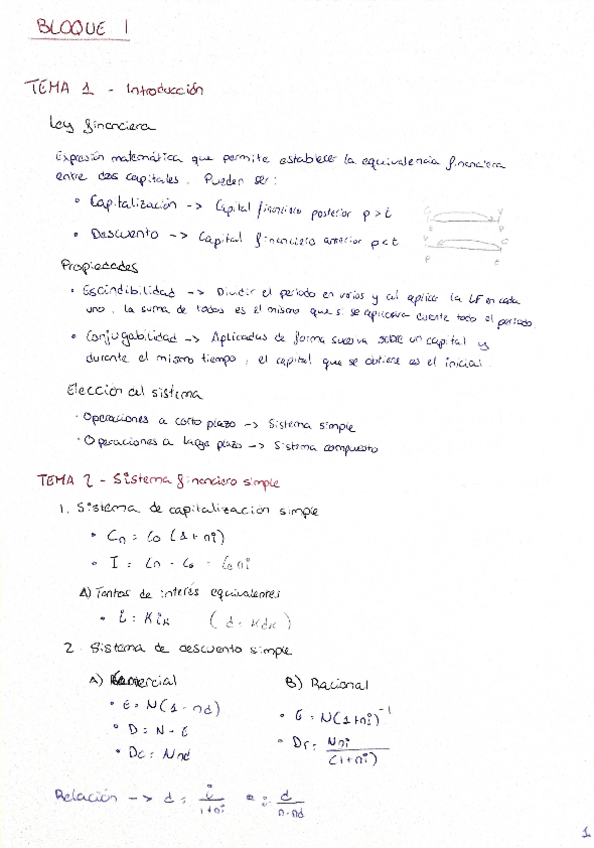 BLOQUE 1
TEMA 1 - Introducción
Ley financiera
Expresión matemática que permite establecer la equivalencia financiera
entre dos capitales. Pueden ser:
• Capitalización -> Capital financiero posterior p > t
• Descuento -> Capital financiero anterior p < t
Propiedades
• Escindibilidad -> Dividir el periodo en varios y al aplicar la LF en cada
uno, la suma de todos es el mismo que si se aplicara durante todo el periodo.
• Conjugabilidad -> Aplicadas de forma sucesiva sobre un capital y
durante el mismo tiempo, el capital que se obtiene es el inicial.
Elección del sistema
· Operaciones a corto plazo -> Sistema simple
· Operaciones a largo plazo -> Sistema compuesto
TEMA 2 - Sistema financiero simple
1. Sistema de capitalización simple
• Cn = C0 (1 + ni)
• I = Cn - C0 = C0 ni
A) Tantos de interés equivalentes
• i = K iK (d = K dK)
2. Sistema de descuento simple
A) Comercial B) Racional
• E = N(1 - nd) • E = N(1+ni)⁻¹
• D = N - E • Dr = Nni / (1+ni)
• Dc = Nnd
Relación -> d = i / 1+ni
1